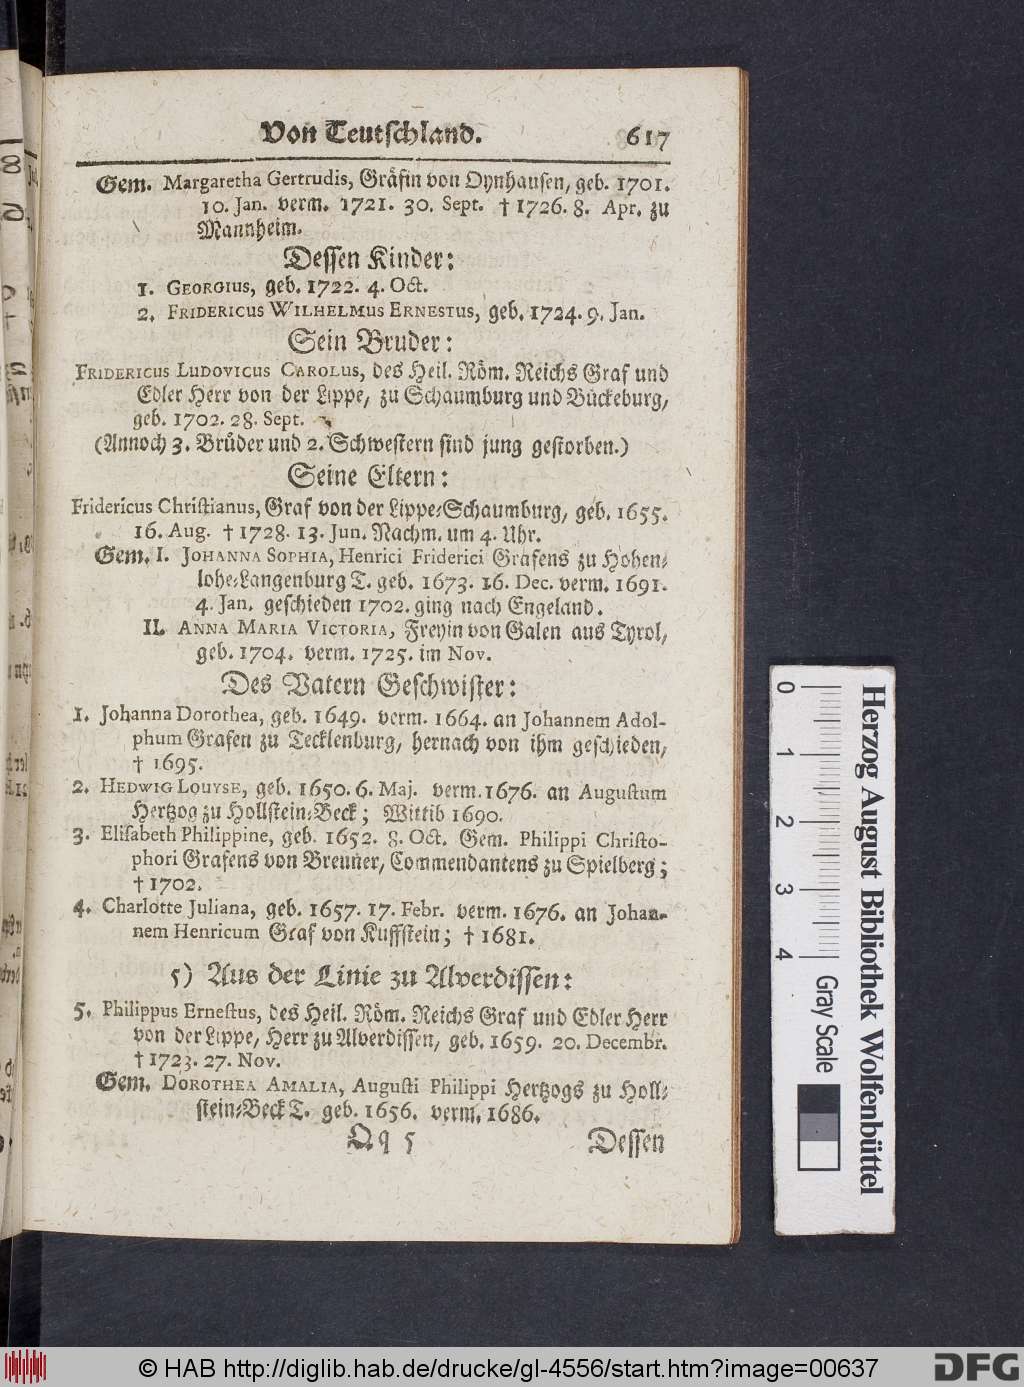 Von Teutschland. 617
Gem. Margaretha Gertrudis, Gräfin von Oynhausen, geb. 1701.
10. Jan. verm. 1721. 30. Sept. † 1726. 8. Apr. zu
Mannheim.
Dessen Kinder:
1. GEORGIUS, geb. 1722. 4. Oct.
2. FRIDERICUS WILHELMUS ERNESTUS, geb. 1724. 9. Jan.
Sein Bruder:
FRIDERICUS LUDOVICUS CAROLUS, des Heil. Röm. Reichs Graf und
Edler Herr von der Lippe, zu Schaumburg und Bückeburg,
geb. 1702. 28. Sept.
(Annoch 3. Brüder und 2. Schwestern sind jung gestorben.)
Seine Eltern:
Fridericus Christianus, Graf von der Lippe-Schaumburg, geb. 1655.
16. Aug. † 1728. 13. Jun. Nachm. um 4. Uhr.
Gem. I. JOHANNA SOPHIA, Henrici Friderici Grafens zu Hohen-
lohe-Langenburg T. geb. 1673. 16. Dec. verm. 1691.
4. Jan. geschieden 1702. ging nach Engeland.
II. ANNA MARIA VICTORIA, Freyin von Galen aus Tyrol,
geb. 1704. verm. 1725. im Nov.
Des Vatern Geschwister:
1. Johanna Dorothea, geb. 1649. verm. 1664. an Johannem Adol-
phum Grafen zu Tecklenburg, hernach von ihm geschieden,
† 1695.
2. HEDWIG LOUYSE, geb. 1650. 6. Maj. verm. 1676. an Augustum
Hertzog zu Hollstein-Beck; Wittib 1690.
3. Elisabeth Philippine, geb. 1652. 8. Oct. Gem. Philippi Christo-
phori Grafens von Breuner, Commendantens zu Spielberg;
† 1702.
4. Charlotte Juliana, geb. 1657. 17. Febr. verm. 1676. an Johan-
nem Henricum Graf von Kuffstein; † 1681.
5) Aus der Linie zu Alverdissen:
5. Philippus Ernestus, des Heil. Röm. Reichs Graf und Edler Herr
von der Lippe, Herr zu Alverdissen, geb. 1659. 20. Decembr.
† 1723. 27. Nov.
Gem. DOROTHEA AMALIA, Augusti Philippi Hertzogs zu Holl-
stein-Beck T. geb. 1656. verm. 1686.
Qq 5 Dessen
0 1 2 3 4 Gray Scale
Herzog August Bibliothek Wolfenbüttel
© HAB http://diglib.hab.de/drucke/gl-4556/start.htm?image=00637
DFG